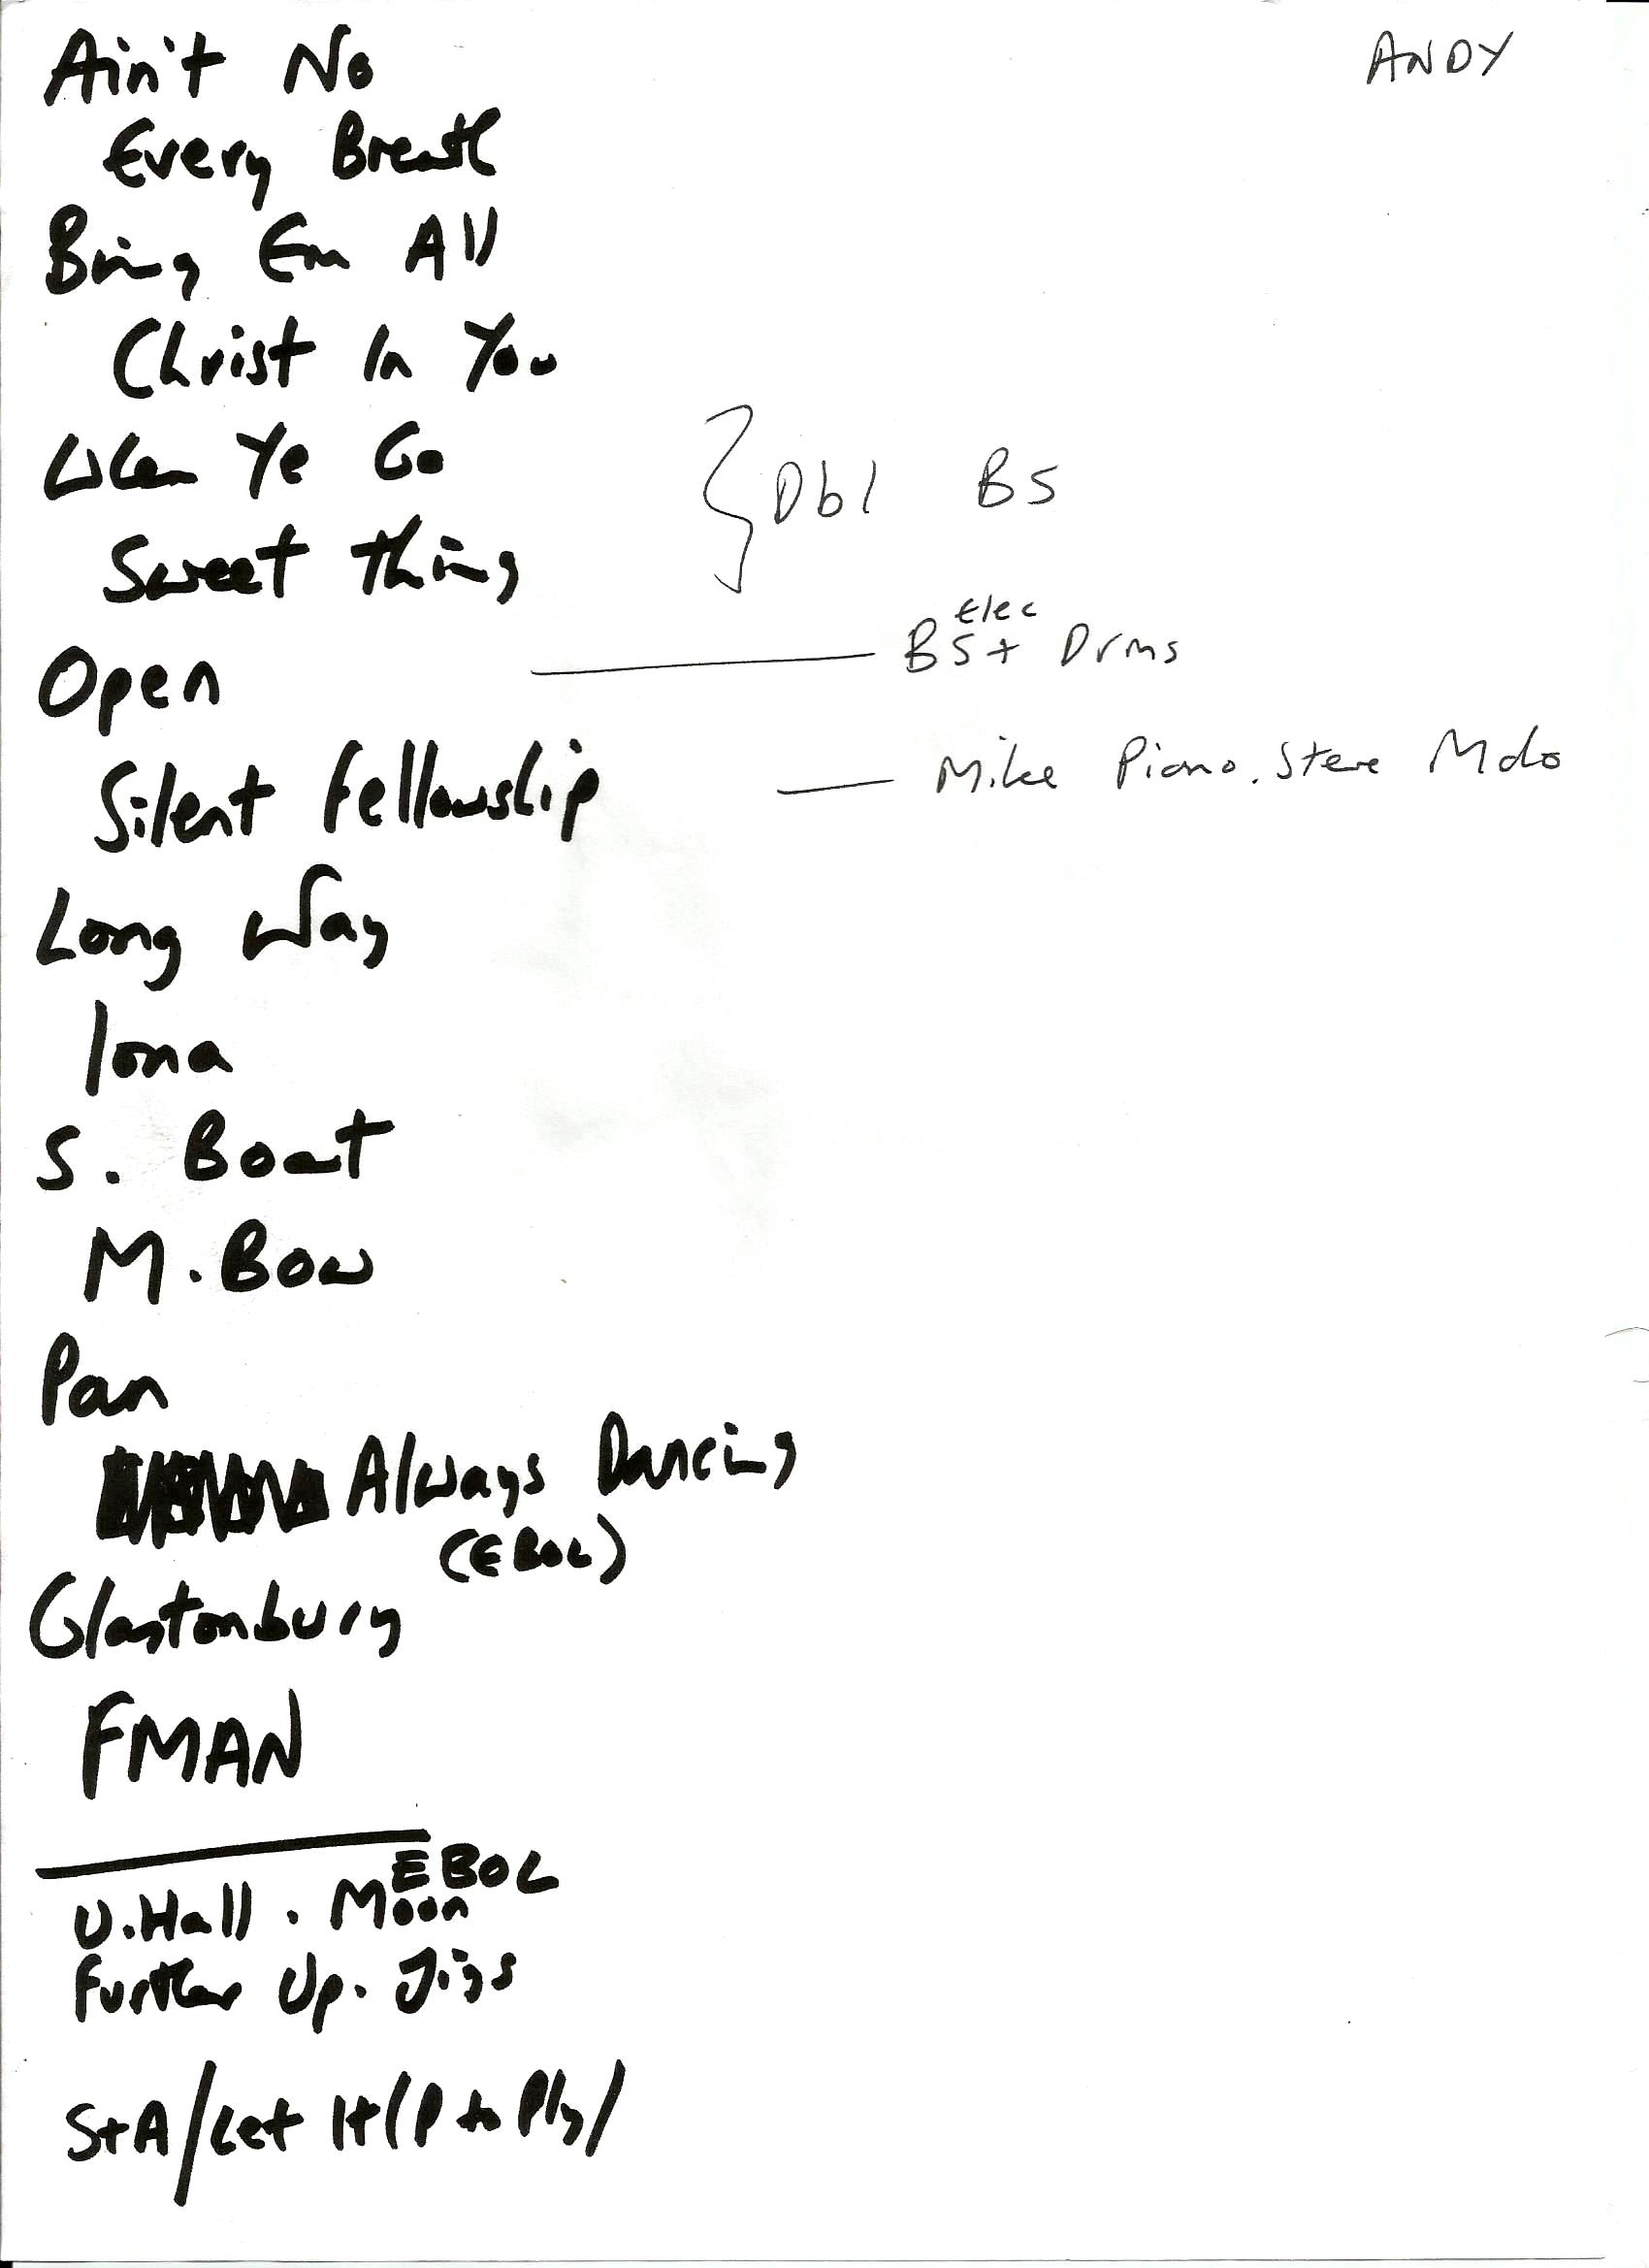 ANDY
Ain't No
Every Breath
Bring Em All
Christ In You
When Ye Go
Dbl BS
Sweet Thing
Elec
Open
BS + Drms
Silent Fellowship
Mike Piano. Steve Mdo
Long Way
Iona
S. Boat
M. Bow
Pan
Always Dancing
(EBOL)
Glastonbury
FMAN
EBOL
U. Hall . Moon
Further Up. Jigs
StA/Let It/P to Ply/